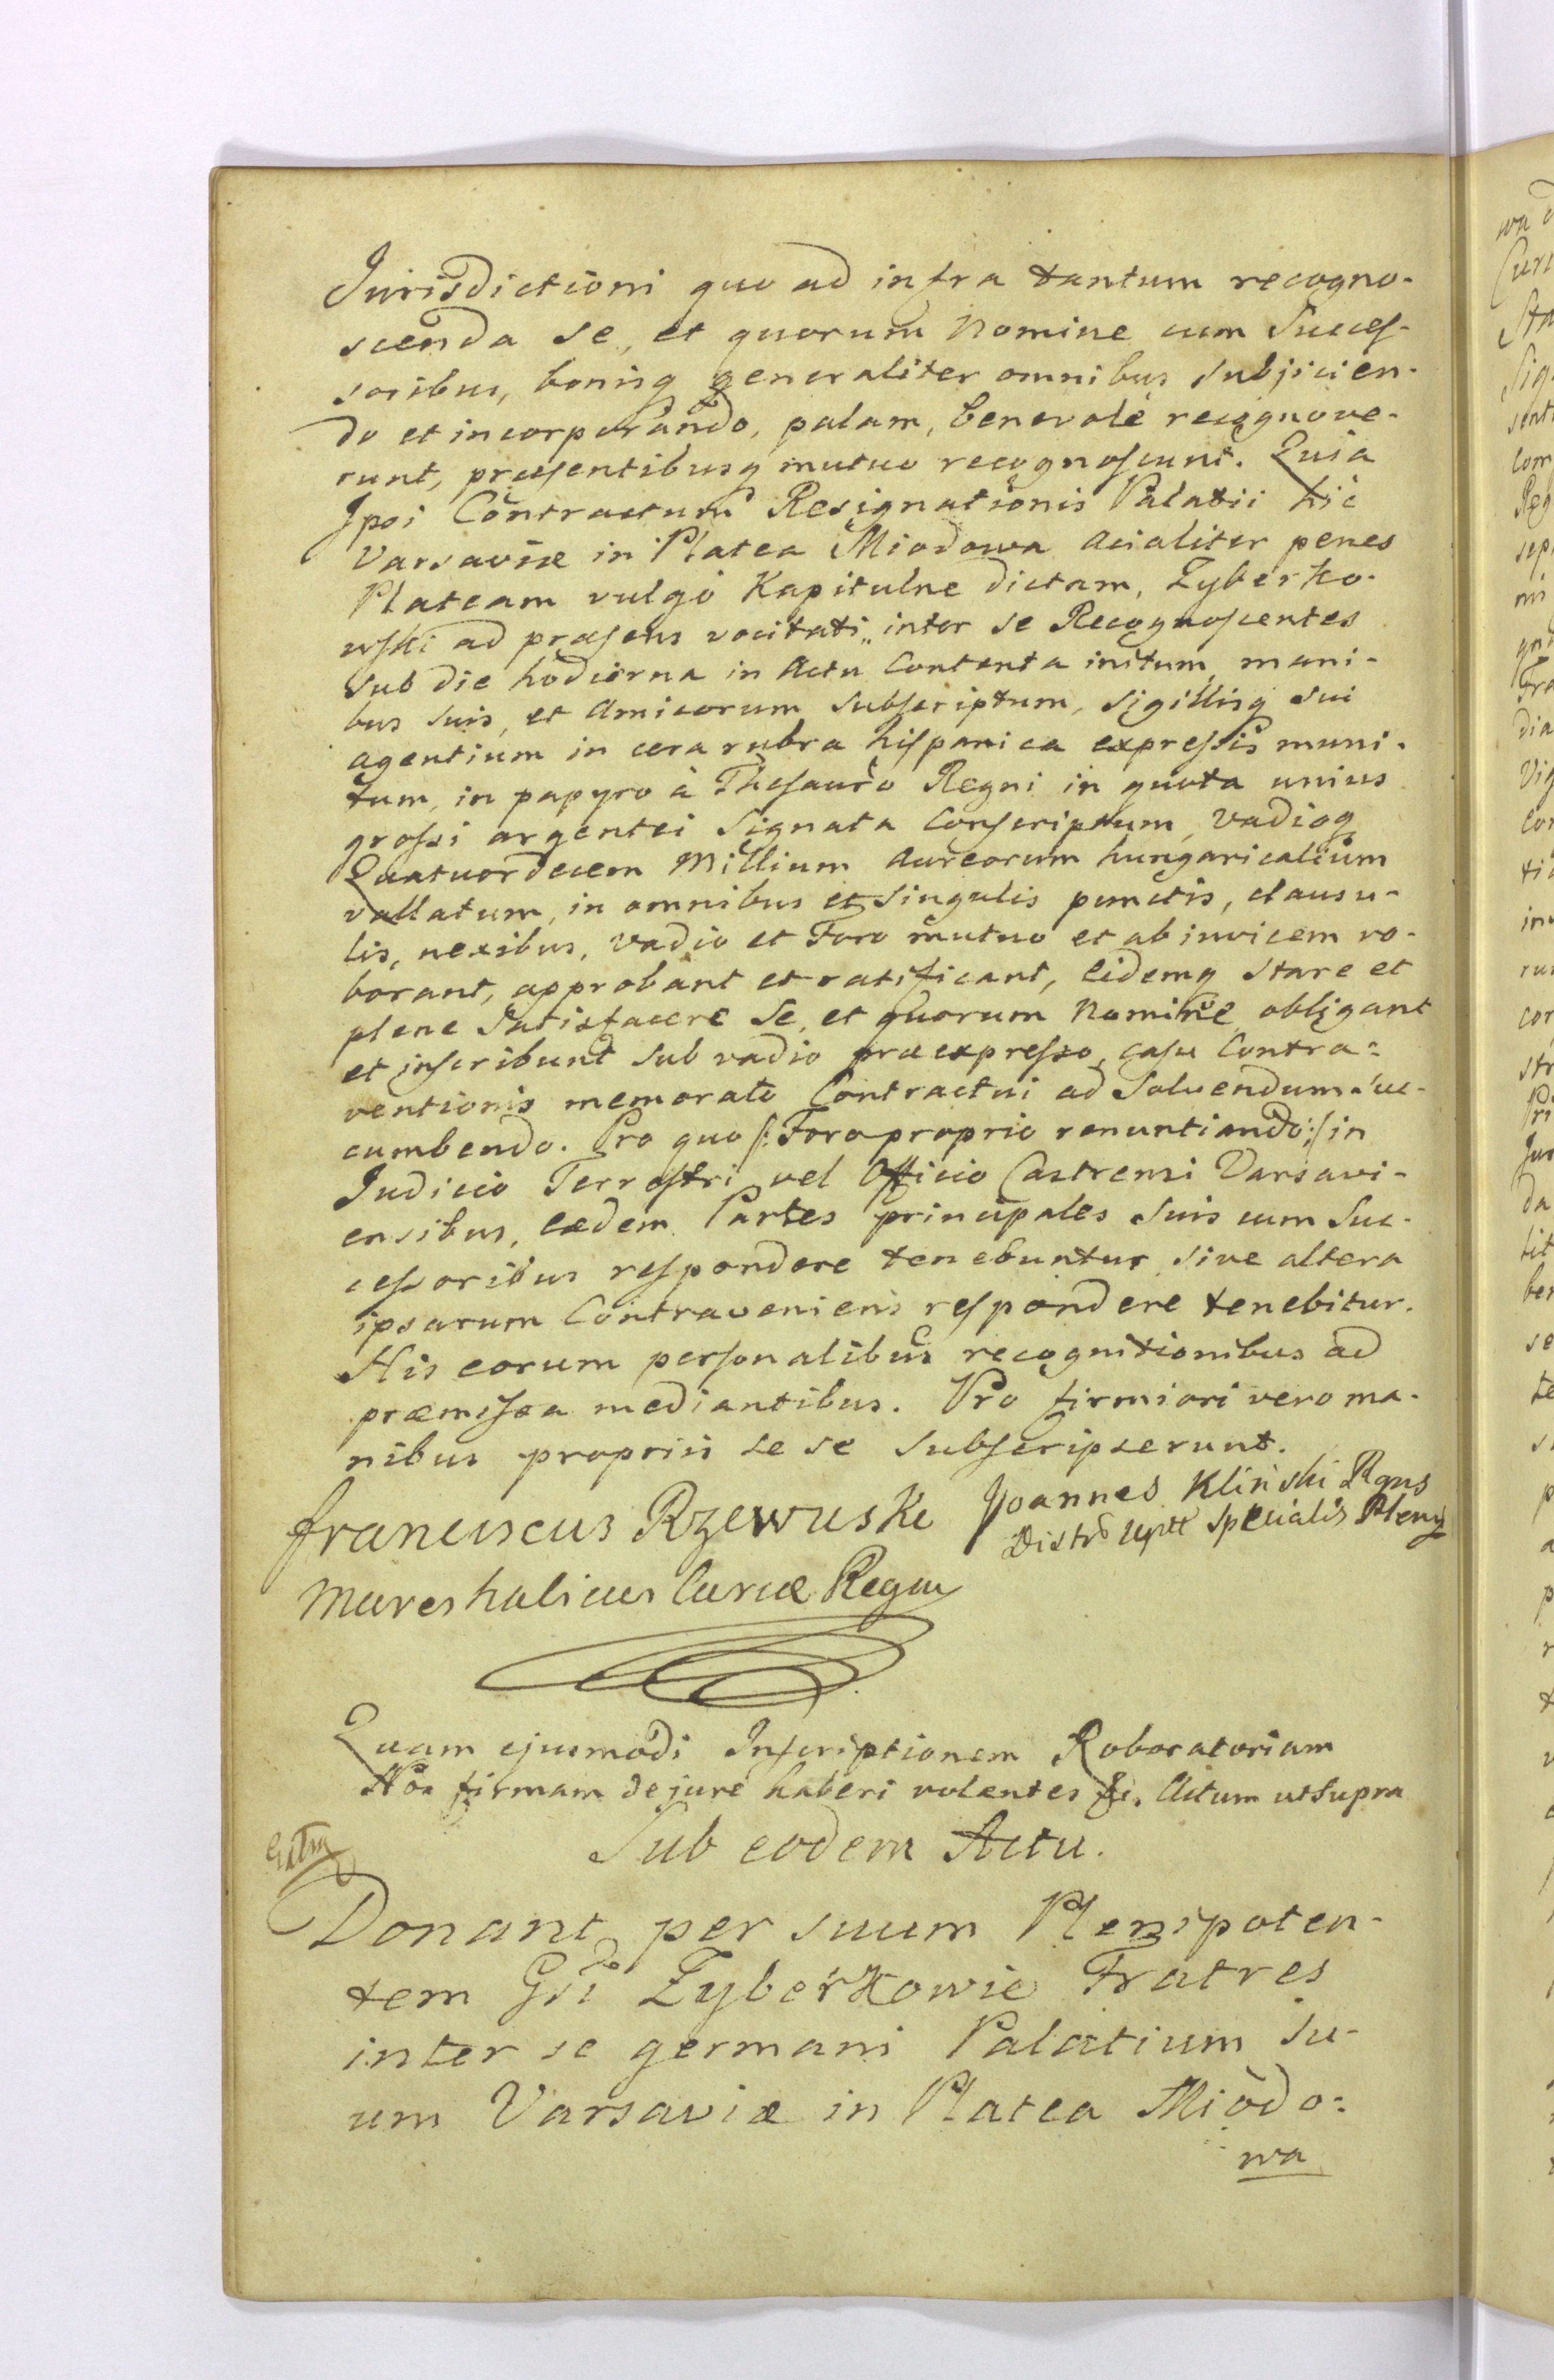 Jurisdictioni quo ad infra tantum recogno-
scenda se, et quorum Nomine cum Succeſ-
soribus, bonisq generaliter omnibus subjicien-
do et incorporando, palam, benevolè recognove-
runt, præſentibusq mutuo recognoſcunt. Quia
Ipsi Contractum Resignationis Palatii hic
Varsaviæ in Platea Miodowa acialiter penes
Plateam vulgo Kapitulne dictam, Zyberko-
wſki ad præſens vocitati, inter se Recognoſcentes
Sub die hodierna in Actu Contenta initum, mani-
bus suis, et Amicorum Subſcriptum, Sigillisq Sui
agentium in cera rubra hiſpanica expreſsis muni-
tum, in papyro à Theſauro Regni in quota unius
groſsi argentei Signata Conſcriptum, Vadioq
Quatuordecem Millium Aureorum hungaricalium
vallatum, in omnibus et Singulis punctis, clausu-
lis, nexibus, Vadio et Foro mutuo et ab invicem ro-
borant, approbant et ratificant, Eidemq Stare et
plene Satisfacere Se, et quorum Nomine, obligant
et inſcribunt Sub vadio præexpreſso, casu Contra=
ventionis memorato Contractui ad Solvendum Suc-
cumbendo. Pro quo /: Foro proprio renuntiando :/ in
Judicio Terreſtri vel Officio Castrensi Varsavi-
ensibus, Eædem Partes principales Suis cum Suc-
ceſsoribus reſpondere tenebuntur, sive altera
ipsarum Contraveniens reſpondere tenebitur.
His eorum perſonalibus recognitionibus ad
præmiſsa mediantibus. Pro firmiori vero ma-
nibus propriis se se Subſcripserunt.
Franciscus Rzewuski Joannes Kliński
specialis
Mareshalicus Curiæ Regni
Quam ejusmodi Inſcriptionem Roboratoriam
Nos firmam de jure haberi volentes Actum ut Supra
Sub eodem Actu.
Donant per suum Plenipoten-
tem Gsi Zyberkowie Fratres
inter se germani Palatium Su-
um Varsaviæ in Platea Miodo=
wa